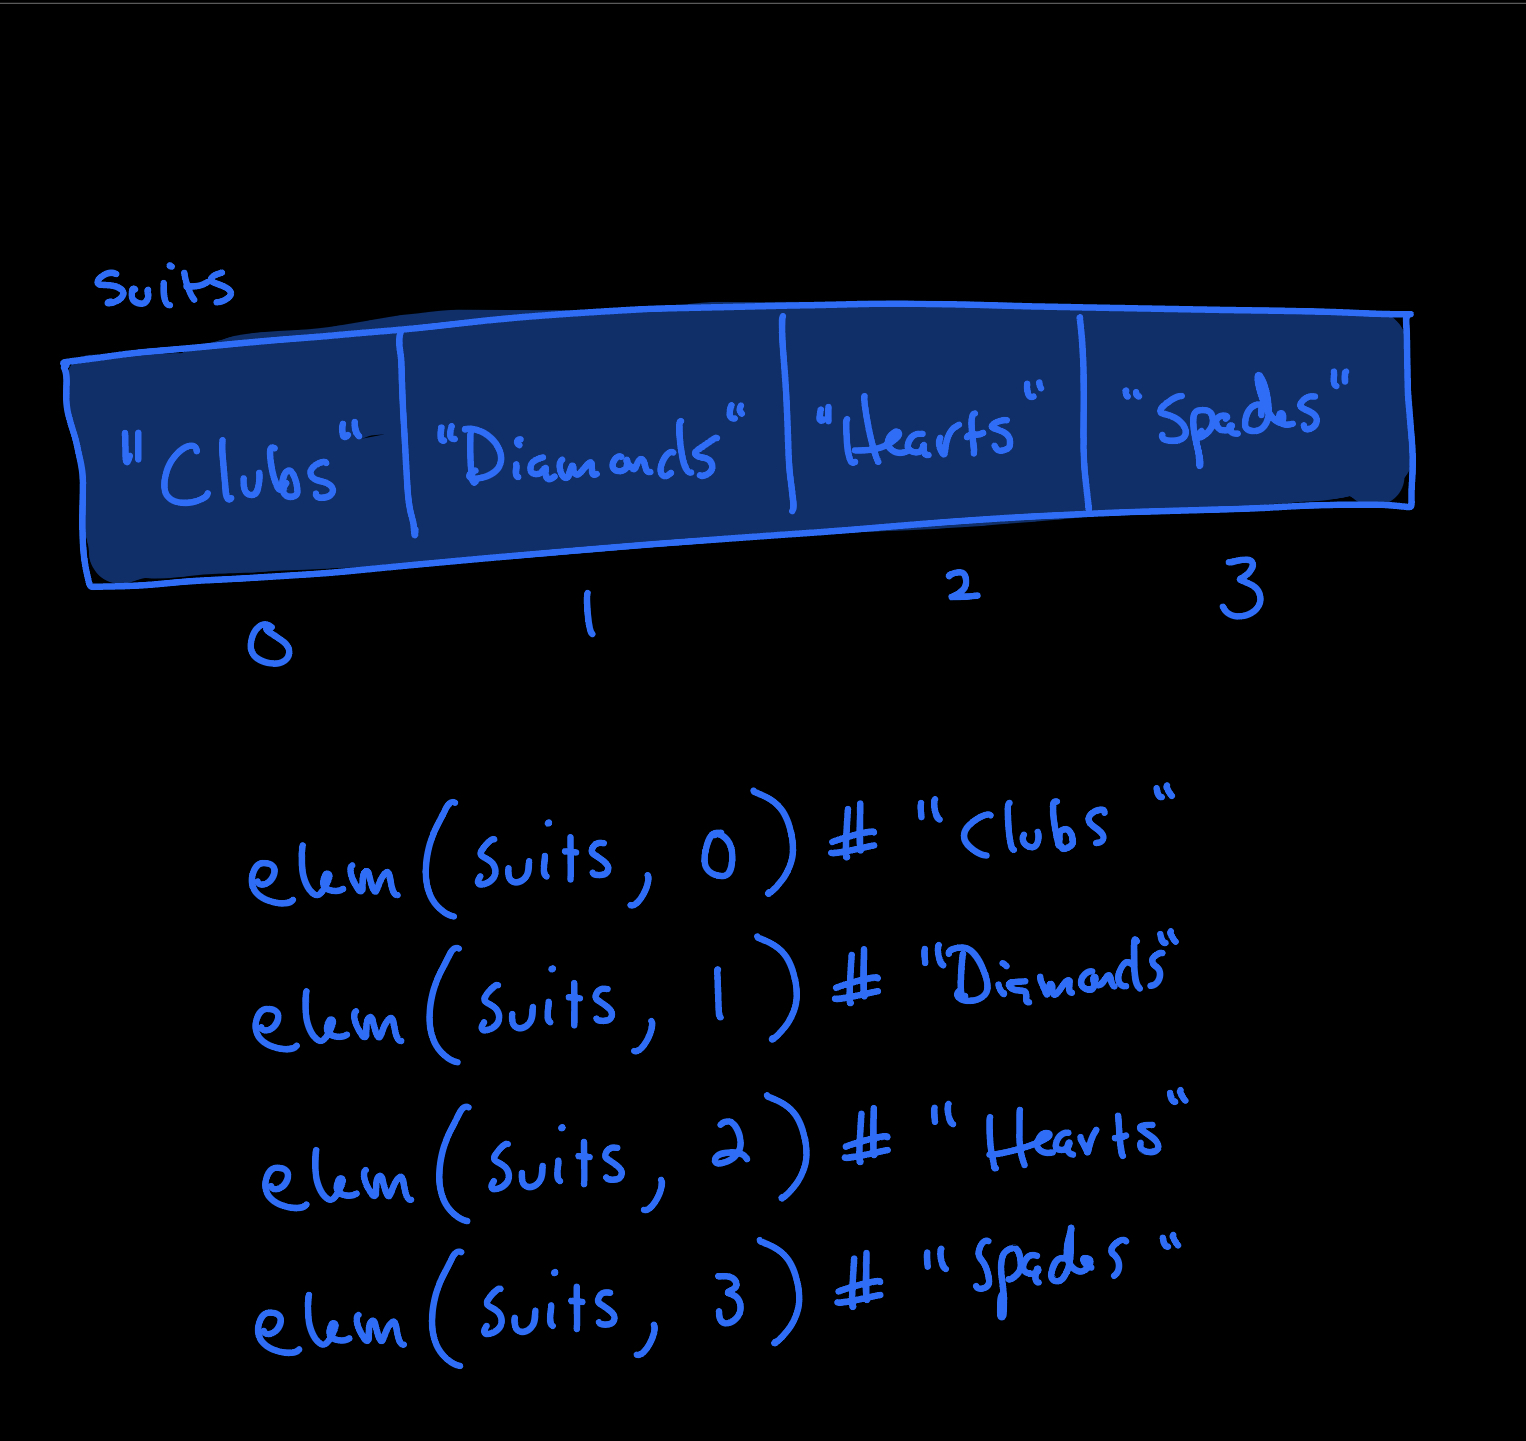 suits
"Clubs" "Diamonds" "Hearts" "Spades"
0 1 2 3
elem(suits, 0) # "Clubs"
elem(suits, 1) # "Diamonds"
elem(suits, 2) # "Hearts"
elem(suits, 3) # "Spades"